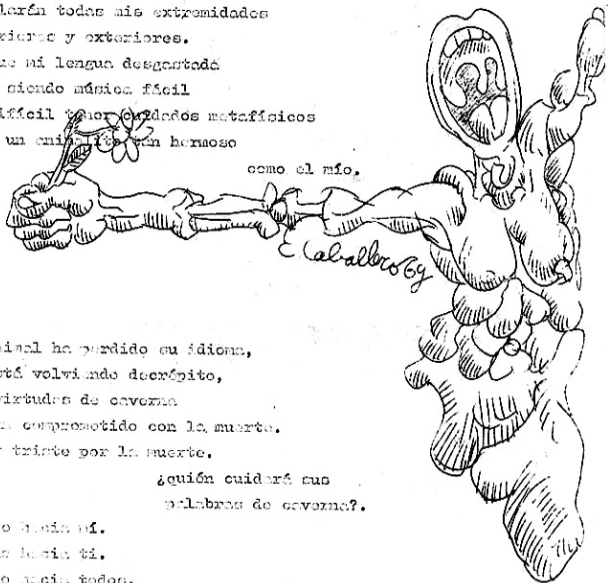 larán todas mis extremidades
riores y exteriores.
ue mi lengua desgastada
siendo música fácil
ifícil tener cuidados metafísicos
un animalito tan hermoso
como el mío.
E Caballero 69
imal ha perdido su idioma,
stá volviendo decrépito,
virtudes de caverna
comprometido con la muerte.
triste por la muerte.
¿quién cuidará sus
palabras de caverna?.
o hacia mí.
hacia ti.
o hacia todos.